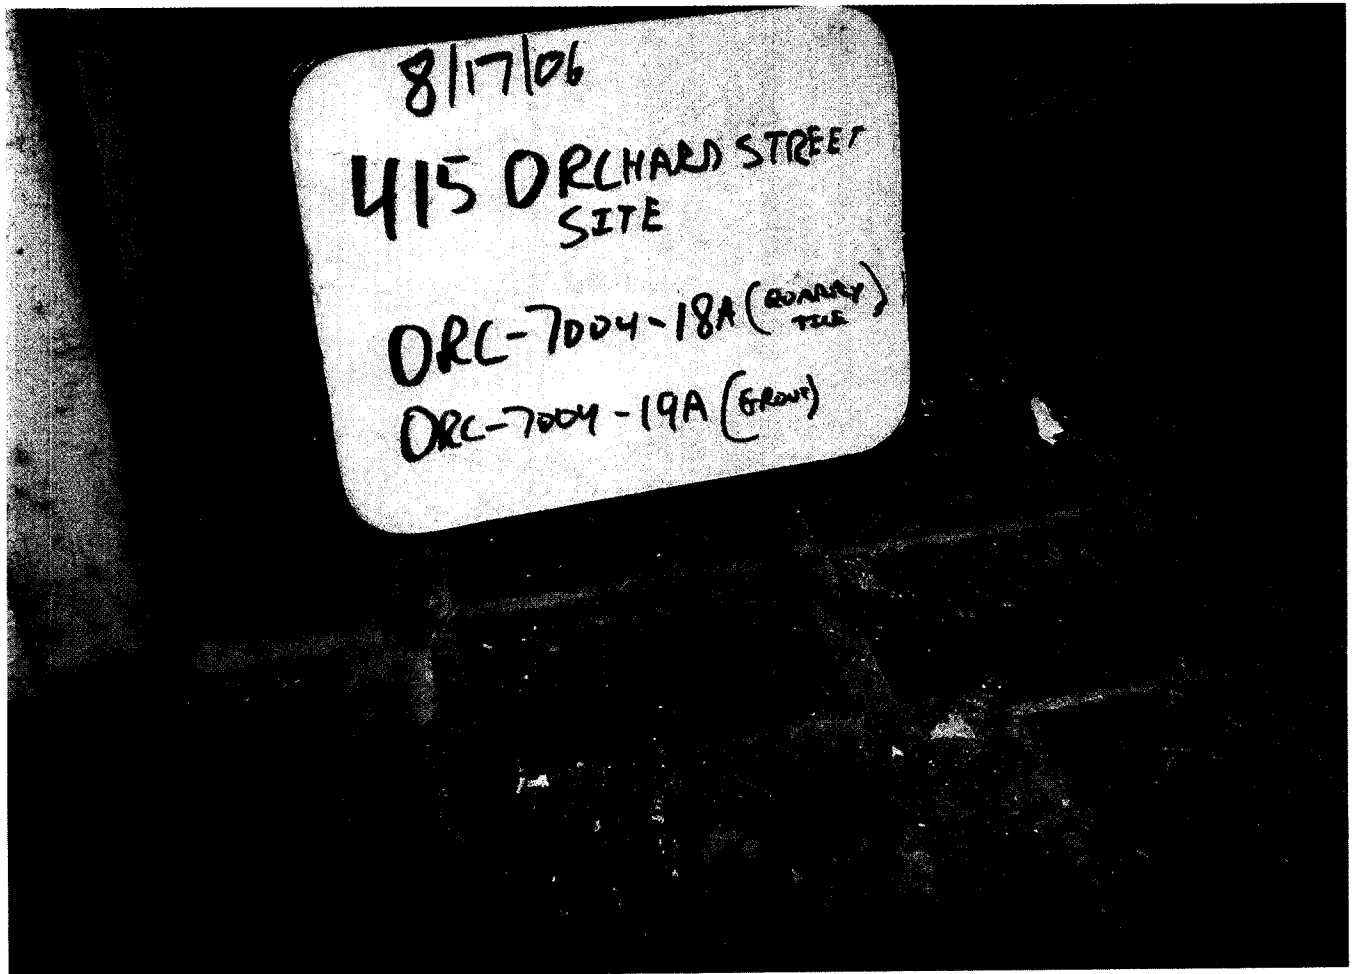 8/17/06
415 ORCHARD STREET
SITE
ORC-7004-18A (QUARRY
TILE)
ORC-7004-19A (GROUT)